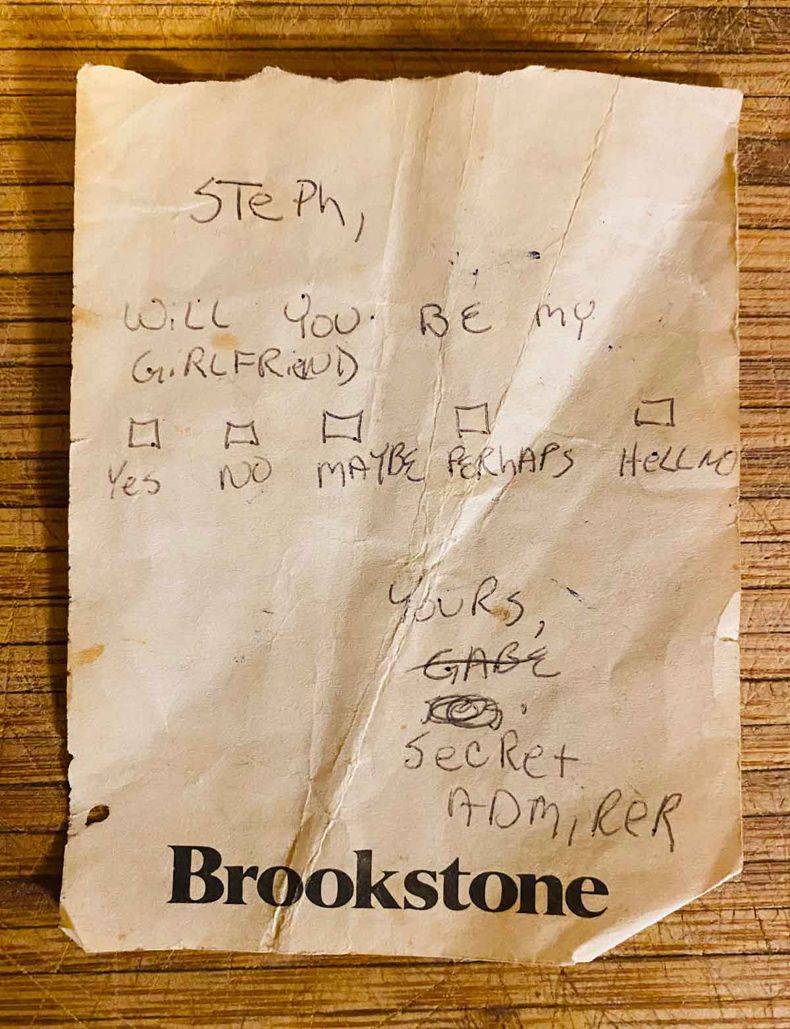 STePh,
WiLL YOU BE MY
GiRLFRiEND
Yes NO MAYBE PERhAPS HeLL NO
YOURS,
GABE
SeCRet
ADMiReR
Brookstone